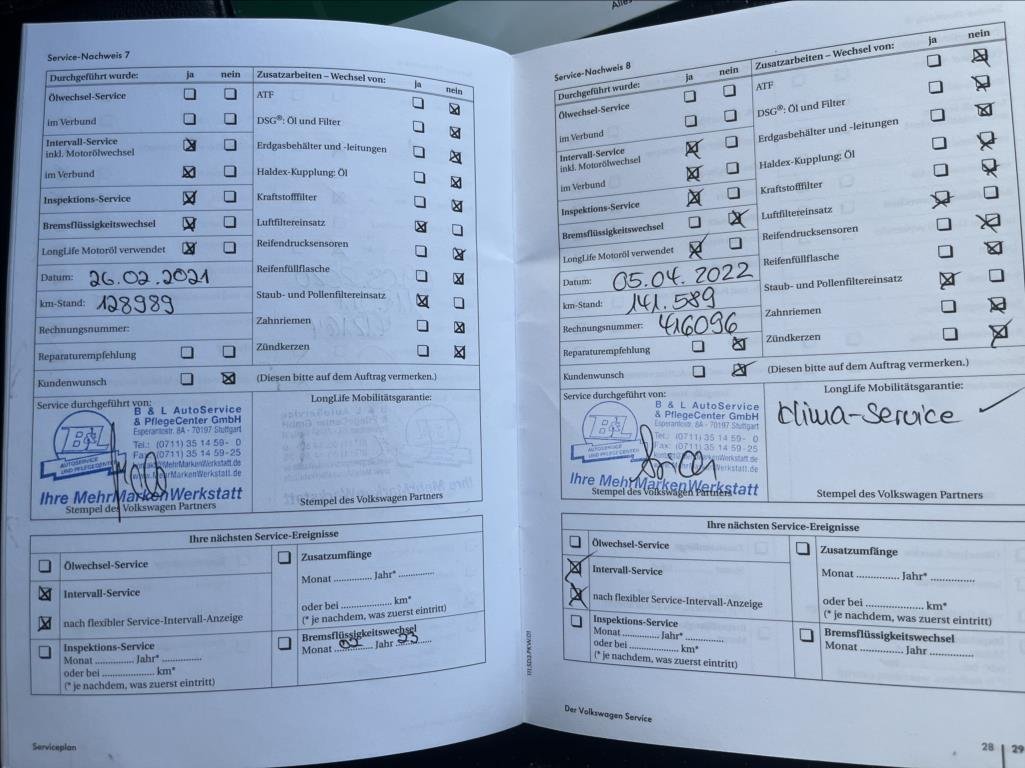 Alles
Service-Nachweis 7
Durchgeführt wurde: ja nein
Ölwechsel-Service
im Verbund
Intervall-Service
inkl. Motorölwechsel
im Verbund
Inspektions-Service
Bremsflüssigkeitswechsel
LongLife Motoröl verwendet
Datum: 26.02.2021
km-Stand: 128989
Rechnungsnummer:
Reparaturempfehlung
Kundenwunsch
Zusatzarbeiten – Wechsel von: ja nein
ATF
DSG®: Öl und Filter
Erdgasbehälter und -leitungen
Haldex-Kupplung: Öl
Kraftstofffilter
Luftfiltereinsatz
Reifendrucksensoren
Reifenfüllflasche
Staub- und Pollenfiltereinsatz
Zahnriemen
Zündkerzen
(Diesen bitte auf dem Auftrag vermerken.)
Service durchgeführt von:
B & L AutoService
& PflegeCenter GmbH
Esperantostr. 8A - 70197 Stuttgart
Tel.: (0711) 35 14 59- 0
Fax: (0711) 35 14 59-25
kontakt@MehrMarkenWerkstatt.de
www.MehrMarkenWerkstatt.de
B&L
AUTOSERVICE
UND PFLEGECENTER
Ihre MehrMarkenWerkstatt
Stempel des Volkswagen Partners
LongLife Mobilitätsgarantie:
Stempel des Volkswagen Partners
Ihre nächsten Service-Ereignisse
Ölwechsel-Service
Intervall-Service
nach flexibler Service-Intervall-Anzeige
Inspektions-Service
Monat .............. Jahr* ..............
oder bei ...................... km*
(* je nachdem, was zuerst eintritt)
Zusatzumfänge
Monat .............. Jahr* ..............
oder bei ...................... km*
(* je nachdem, was zuerst eintritt)
Bremsflüssigkeitswechsel
Monat 02 Jahr 23
Serviceplan
Service-Nachweis 8
Durchgeführt wurde: ja nein
Ölwechsel-Service
im Verbund
Intervall-Service
inkl. Motorölwechsel
im Verbund
Inspektions-Service
Bremsflüssigkeitswechsel
LongLife Motoröl verwendet
Datum: 05.04.2022
km-Stand: 141.589
Rechnungsnummer: 416096
Reparaturempfehlung
Kundenwunsch
Zusatzarbeiten – Wechsel von: ja nein
ATF
DSG®: Öl und Filter
Erdgasbehälter und -leitungen
Haldex-Kupplung: Öl
Kraftstofffilter
Luftfiltereinsatz
Reifendrucksensoren
Reifenfüllflasche
Staub- und Pollenfiltereinsatz
Zahnriemen
Zündkerzen
(Diesen bitte auf dem Auftrag vermerken.)
Service durchgeführt von:
B & L AutoService
& PflegeCenter GmbH
Esperantostr. 8A - 70197 Stuttgart
Tel.: (0711) 35 14 59- 0
Fax: (0711) 35 14 59-25
www.MehrMarkenWerkstatt.de
B&L
AUTOSERVICE
UND PFLEGECENTER
Ihre MehrMarkenWerkstatt
Stempel des Volkswagen Partners
LongLife Mobilitätsgarantie:
Klima-Service
Stempel des Volkswagen Partners
Ihre nächsten Service-Ereignisse
Ölwechsel-Service
Intervall-Service
nach flexibler Service-Intervall-Anzeige
Inspektions-Service
Monat .............. Jahr* ..............
oder bei ...................... km*
(* je nachdem, was zuerst eintritt)
Zusatzumfänge
Monat .............. Jahr* ..............
oder bei ...................... km*
(* je nachdem, was zuerst eintritt)
Bremsflüssigkeitswechsel
Monat .............. Jahr ..............
Der Volkswagen Service
28 | 29